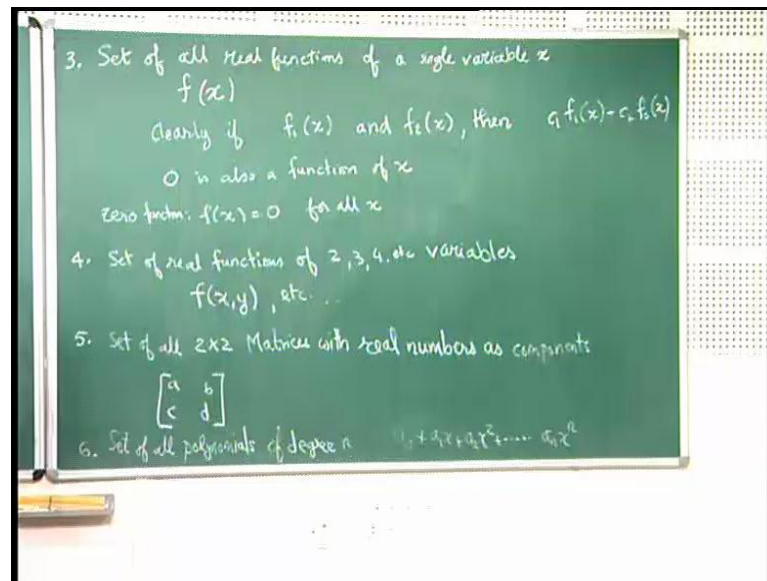 3. Set of all real functions of a single variable x
f(x)
Clearly if f₁(x) and f₂(x), then c₁f₁(x) - c₂f₂(x)
0 is also a function of x
zero function: f(x) = 0 for all x
4. Set of real functions of 2, 3, 4, etc variables
f(x,y), etc...
5. Set of all 2x2 Matrices with real numbers as components
[a b
c d]
6. Set of all polynomials of degree n a₀ + a₁x + a₂x² + ..... aₙxⁿ